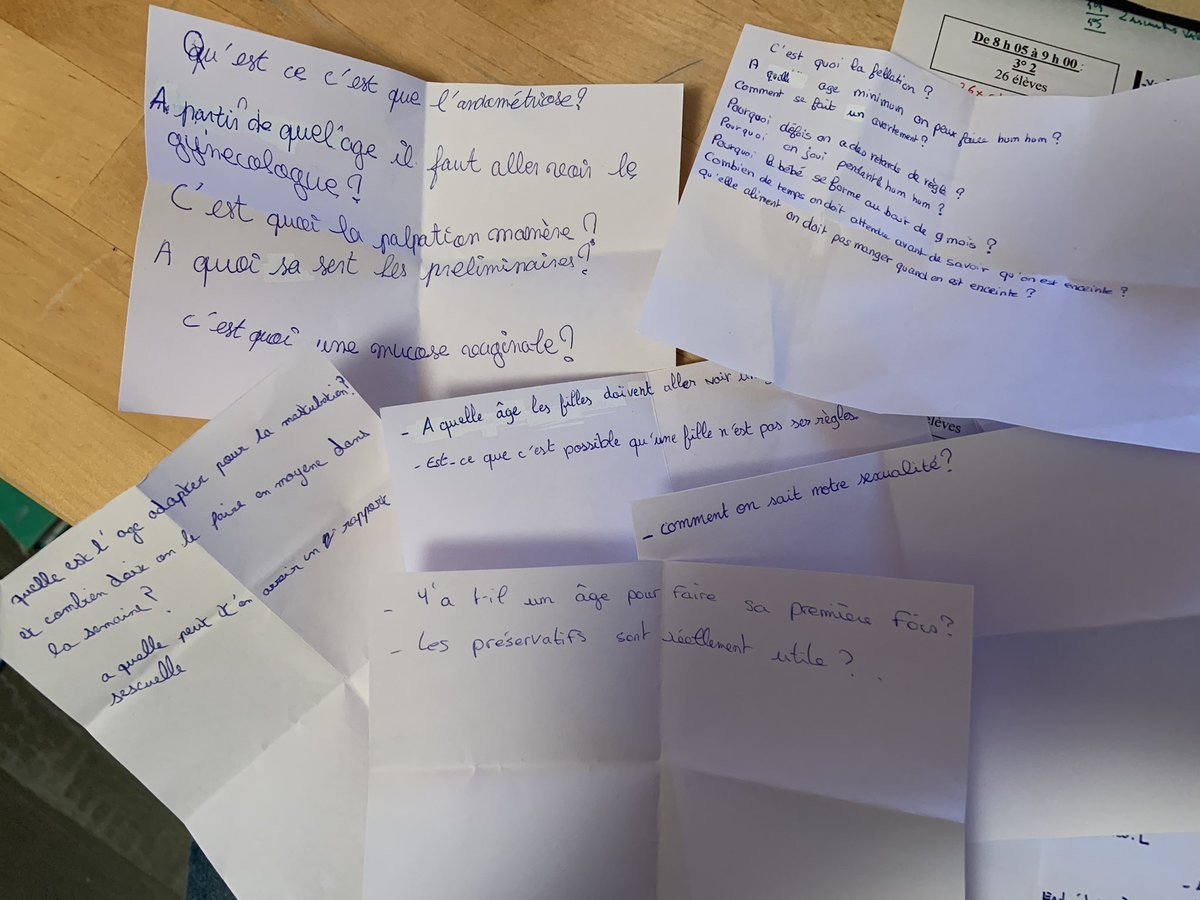 Qu'est ce c'est que l'andométriose?
A partir de quel âge il faut aller voir le
gynecologue?
C'est quoi la palpation mamère?
A quoi sa sert les preliminaires?
c'est quoi une mucose vaginale?
C'est quoi la fellation?
A quelle age minimum on peux faire hum hum?
Comment se fait un avortement?
Pourquoi défois on a des retards de règle?
Pourquoi on joui pendant le hum hum?
Pourquoi le bébé se forme au bout de 9 mois?
Combien de temps on doit attendre avant de savoir qu'on est enceinte?
Qu'elle aliment on doit pas manger quand on est enceinte?
De 8 h 05 à 9 h 00 :
3° 2
26 élèves
quelle est l'age adapter pour la mastubation?
et combien doix on le faire en moyene dans
la semaine?
a quelle peut t'on avoir un rapport
sescuelle
- A quelle âge les filles doivent aller voir
- Est-ce que c'est possible qu'une fille n'est pas ser règles.
élèves
- comment on sait notre sexualité?
- Y'a t-il un âge pour faire sa première fois?
- Les préservatifs sont réellement utile?